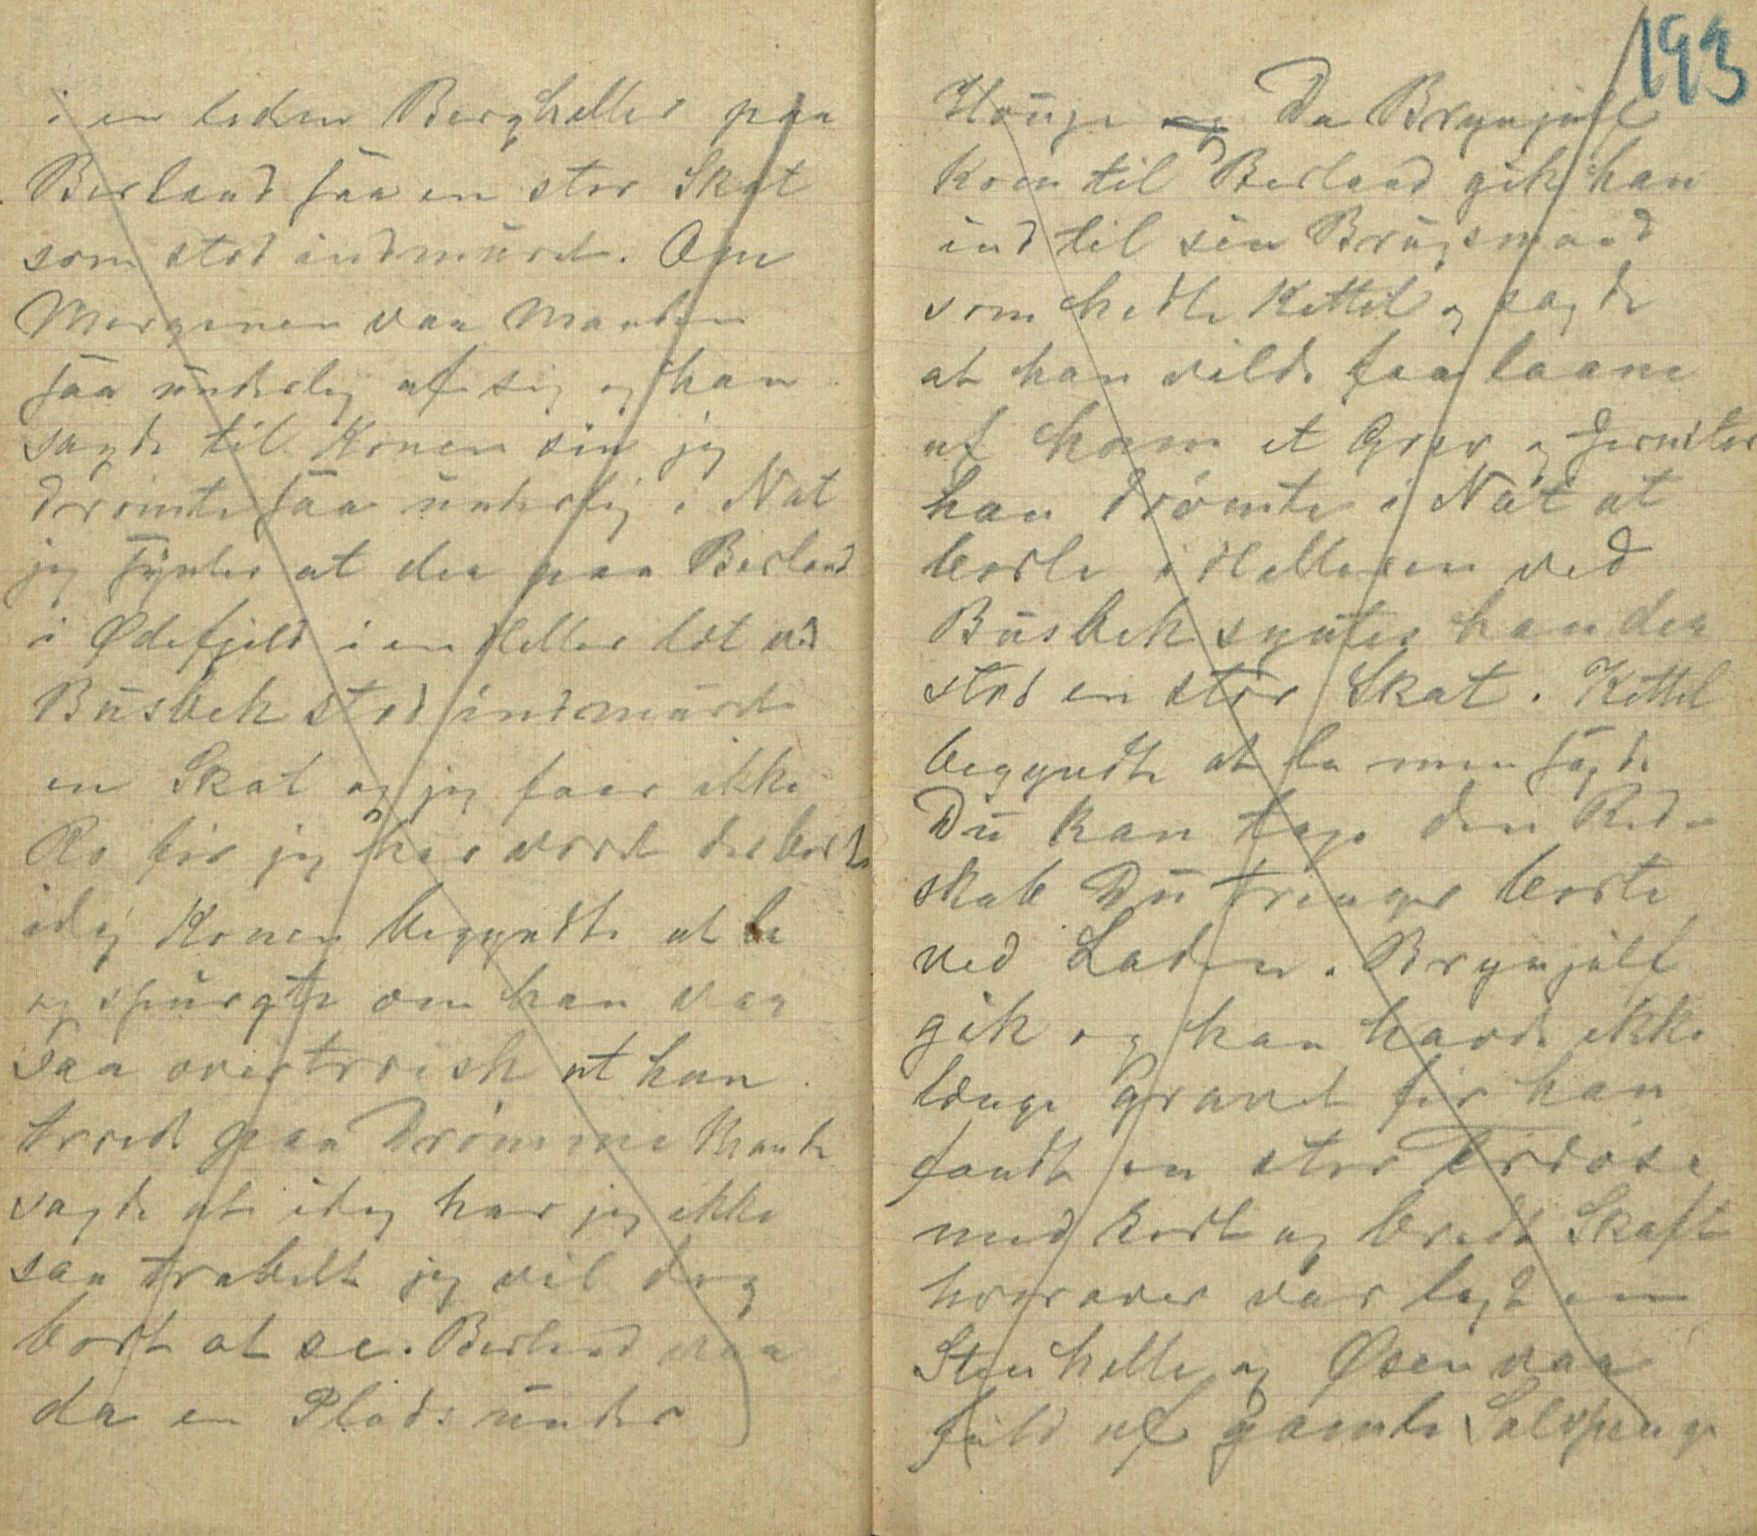 i en leden Bergheller paa
Berland saa en stor Skat
som stod indmuret. Om
Morgenen vaa Manden
saa underlig af sig og han
sagde til Konen sin jeg
drømte saa underlig i Nat
jeg syntes at der paa Berland
i Ødefjeld i en Heller læt ved
Busbek stod indmuret
en Skat og jeg faar ikke
Ro før jeg har vært der borte
idag Konen begyndte at le
og spurgte om han var
saa overtroisk at han
troede paa Drømme Manden
sagde at idag har jeg ikke
saa trabelt jeg vil dog
bort at se. Berland vaa
da en Plads under
193
Houge Da Brynjulf
kom til Berland gik han
ind til sin Brugsmand
som hedte Kettel og sagde
at han vilde faa laane
af ham et Grev og Jernstør
han drømte i Nat at
borte i Helleren ved
Busbek syntes han der
stod en stor Skat. Kettel
begyndte at le men sagde
Du kan tage den Red-
skab Du trænger borte
ved Laden. Brynjulf
gik og han havde ikke
længe gravet før han
fandt en stor Trøøse
med kort og bredt Skaft
hvorover var lagt en
Stenhelle og Øsen vaa
fuld af gamle Sølvpenge